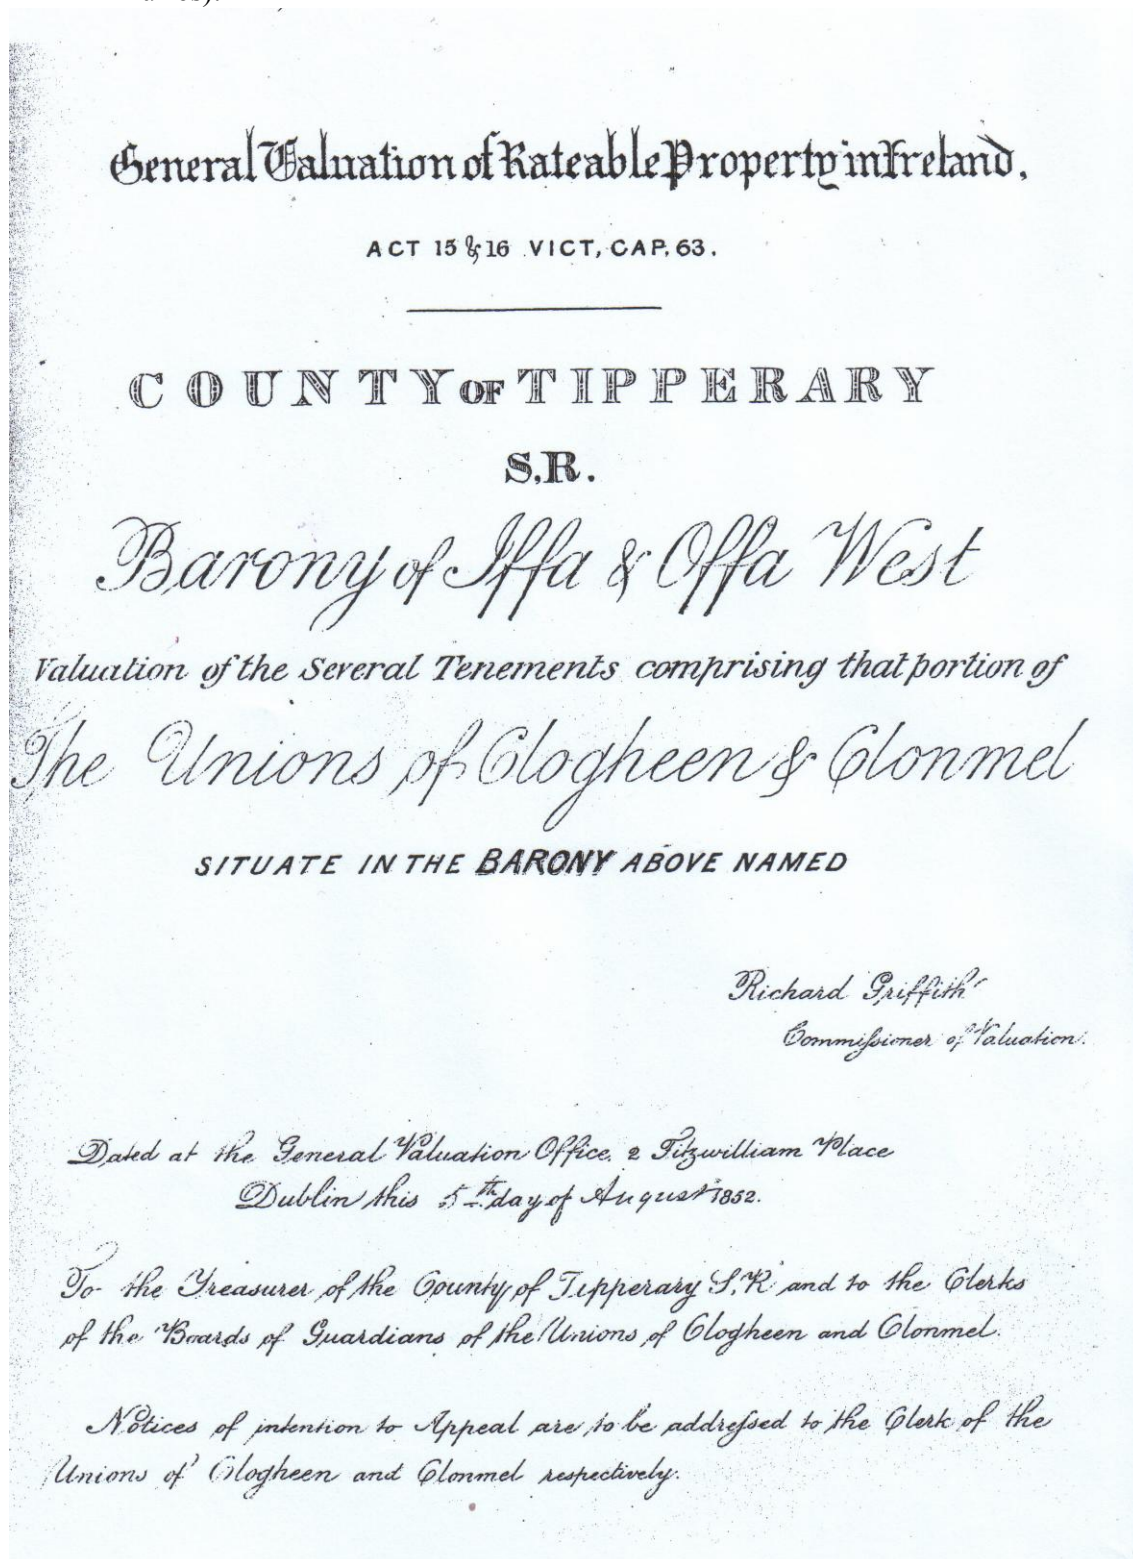 General Valuation of Rateable Property in Ireland.
ACT 15 & 16 VICT, CAP. 63.
COUNTY OF TIPPERARY
S.R.
Barony of Iffa & Offa West
Valuation of the Several Tenements comprising that portion of
The Unions of Clogheen & Clonmel
SITUATE IN THE BARONY ABOVE NAMED
Richard Griffith
Commissioner of Valuation.
Dated at the General Valuation Office, 2 Fitzwilliam Place
Dublin this 5th day of August 1852.
To the Treasurer of the County of Tipperary S.R. and to the Clerks
of the Boards of Guardians of the Unions of Clogheen and Clonmel.
Notices of intention to Appeal are to be addressed to the Clerk of the
Unions of Clogheen and Clonmel respectively.